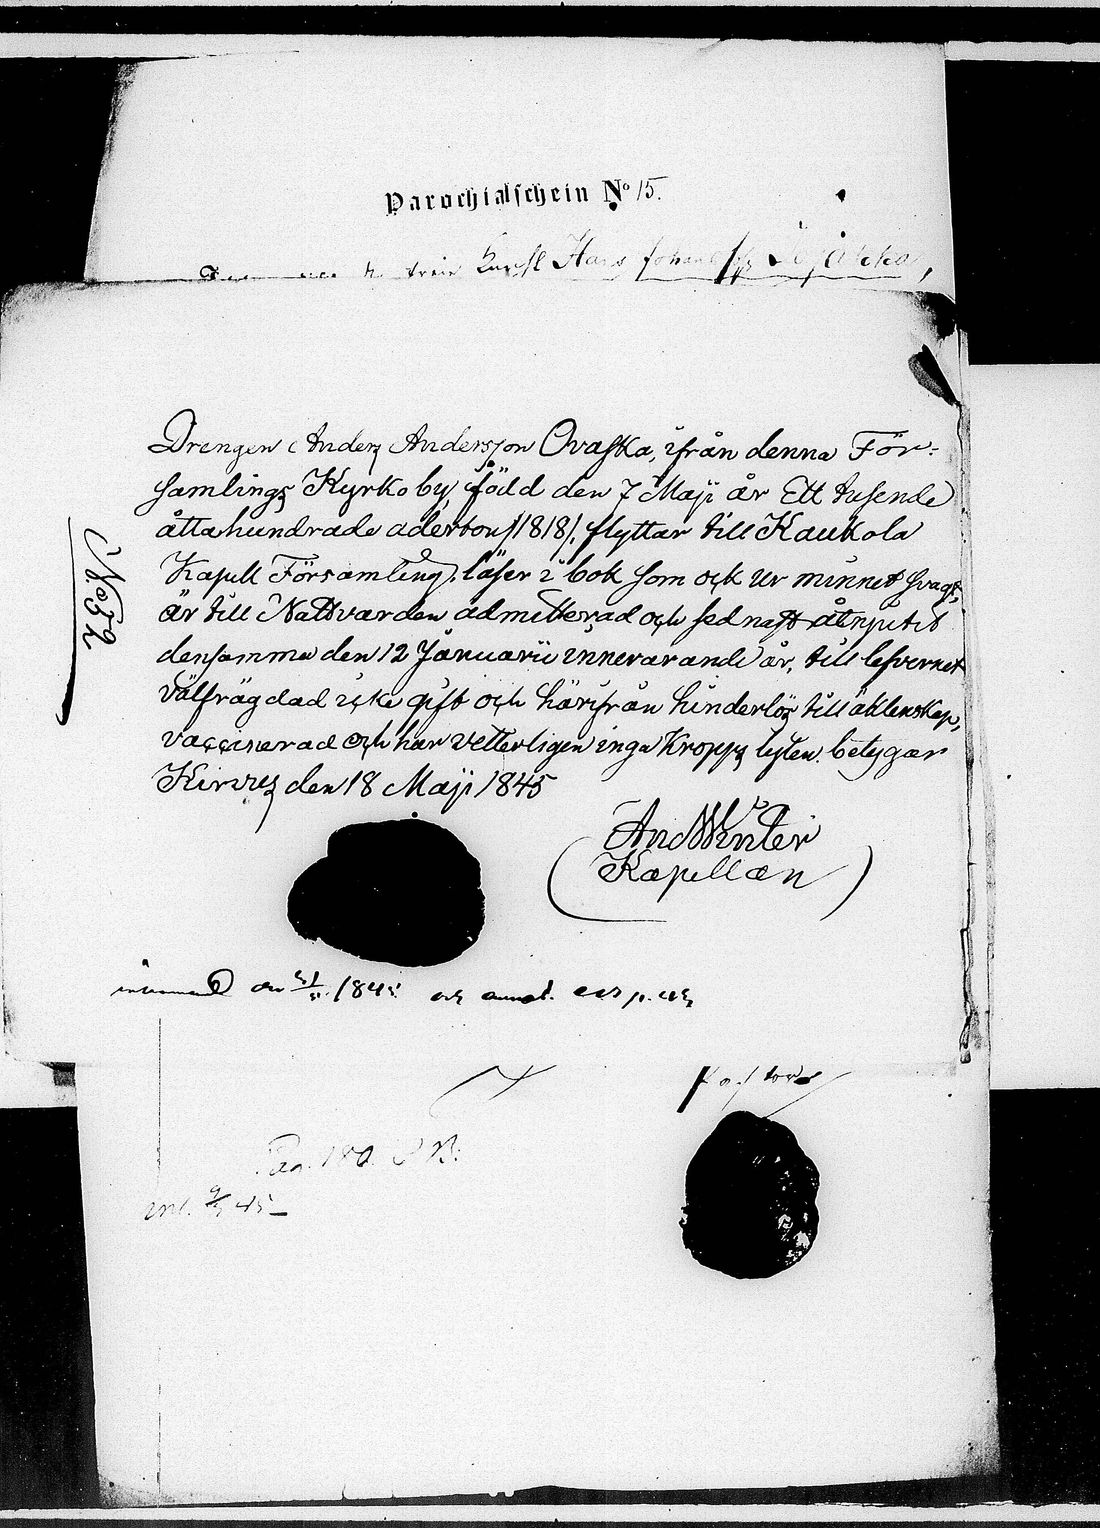 Parochialschein No 15.
Hans Johan
Drengen Anders Andersson Ovaska, ifrån denna För-
samlings Kyrkoby, född den 7 Maji år Ett tusende
åttahundrade aderton /1818/, flyttar till Kaukola
Kapell Församling; läser i bok som ock ur minnet svagt,
är till Nattvarden admitterad och sednast åtnjutit
densamma den 12 Januarii innevarande år, till lefvernet
välfrägdad icke gift och härifrån hinderlös till äktenskap,
vaccinerad och har vetterligen inga Kropps lyten. betygar
Kirvus den 18 Maji 1845
And Winter
Kapellan
No 52
1845
Pastor
Pag. 180.